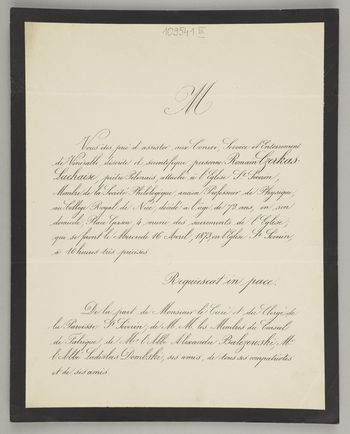 109541 III
M
Vous êtes prié d'assister aux Convoi, Service et Enterrement
de Vénérable, discrète et scientifique personne Romain Czerkas
Lachaise, prêtre Polonais, attaché à l'Eglise St Séverin,
Membre de la Société Philologique, ancien Professeur de Physique,
au Collège Royal de Nice, décédé à l'âge de 72 ans, en son
domicile, Place Gerson 4, munie des sacrements de l'Eglise,
qui se feront le Mercredi 16 Avril, 1873, en l'Eglise St Séverin,
à 10 heures très précises.
Requiescat in pace.
De la part de Monsieur le Curé et du Clergé de
la Paroisse St Séverin, de M. M. les Membres du Conseil
de Fabrique, de Mr l'Abbé Alexandre Bulezowski, Mr
l'Abbé Ladislas Dembski, ses amis, de tous ses compatriotes
et de ses amis.